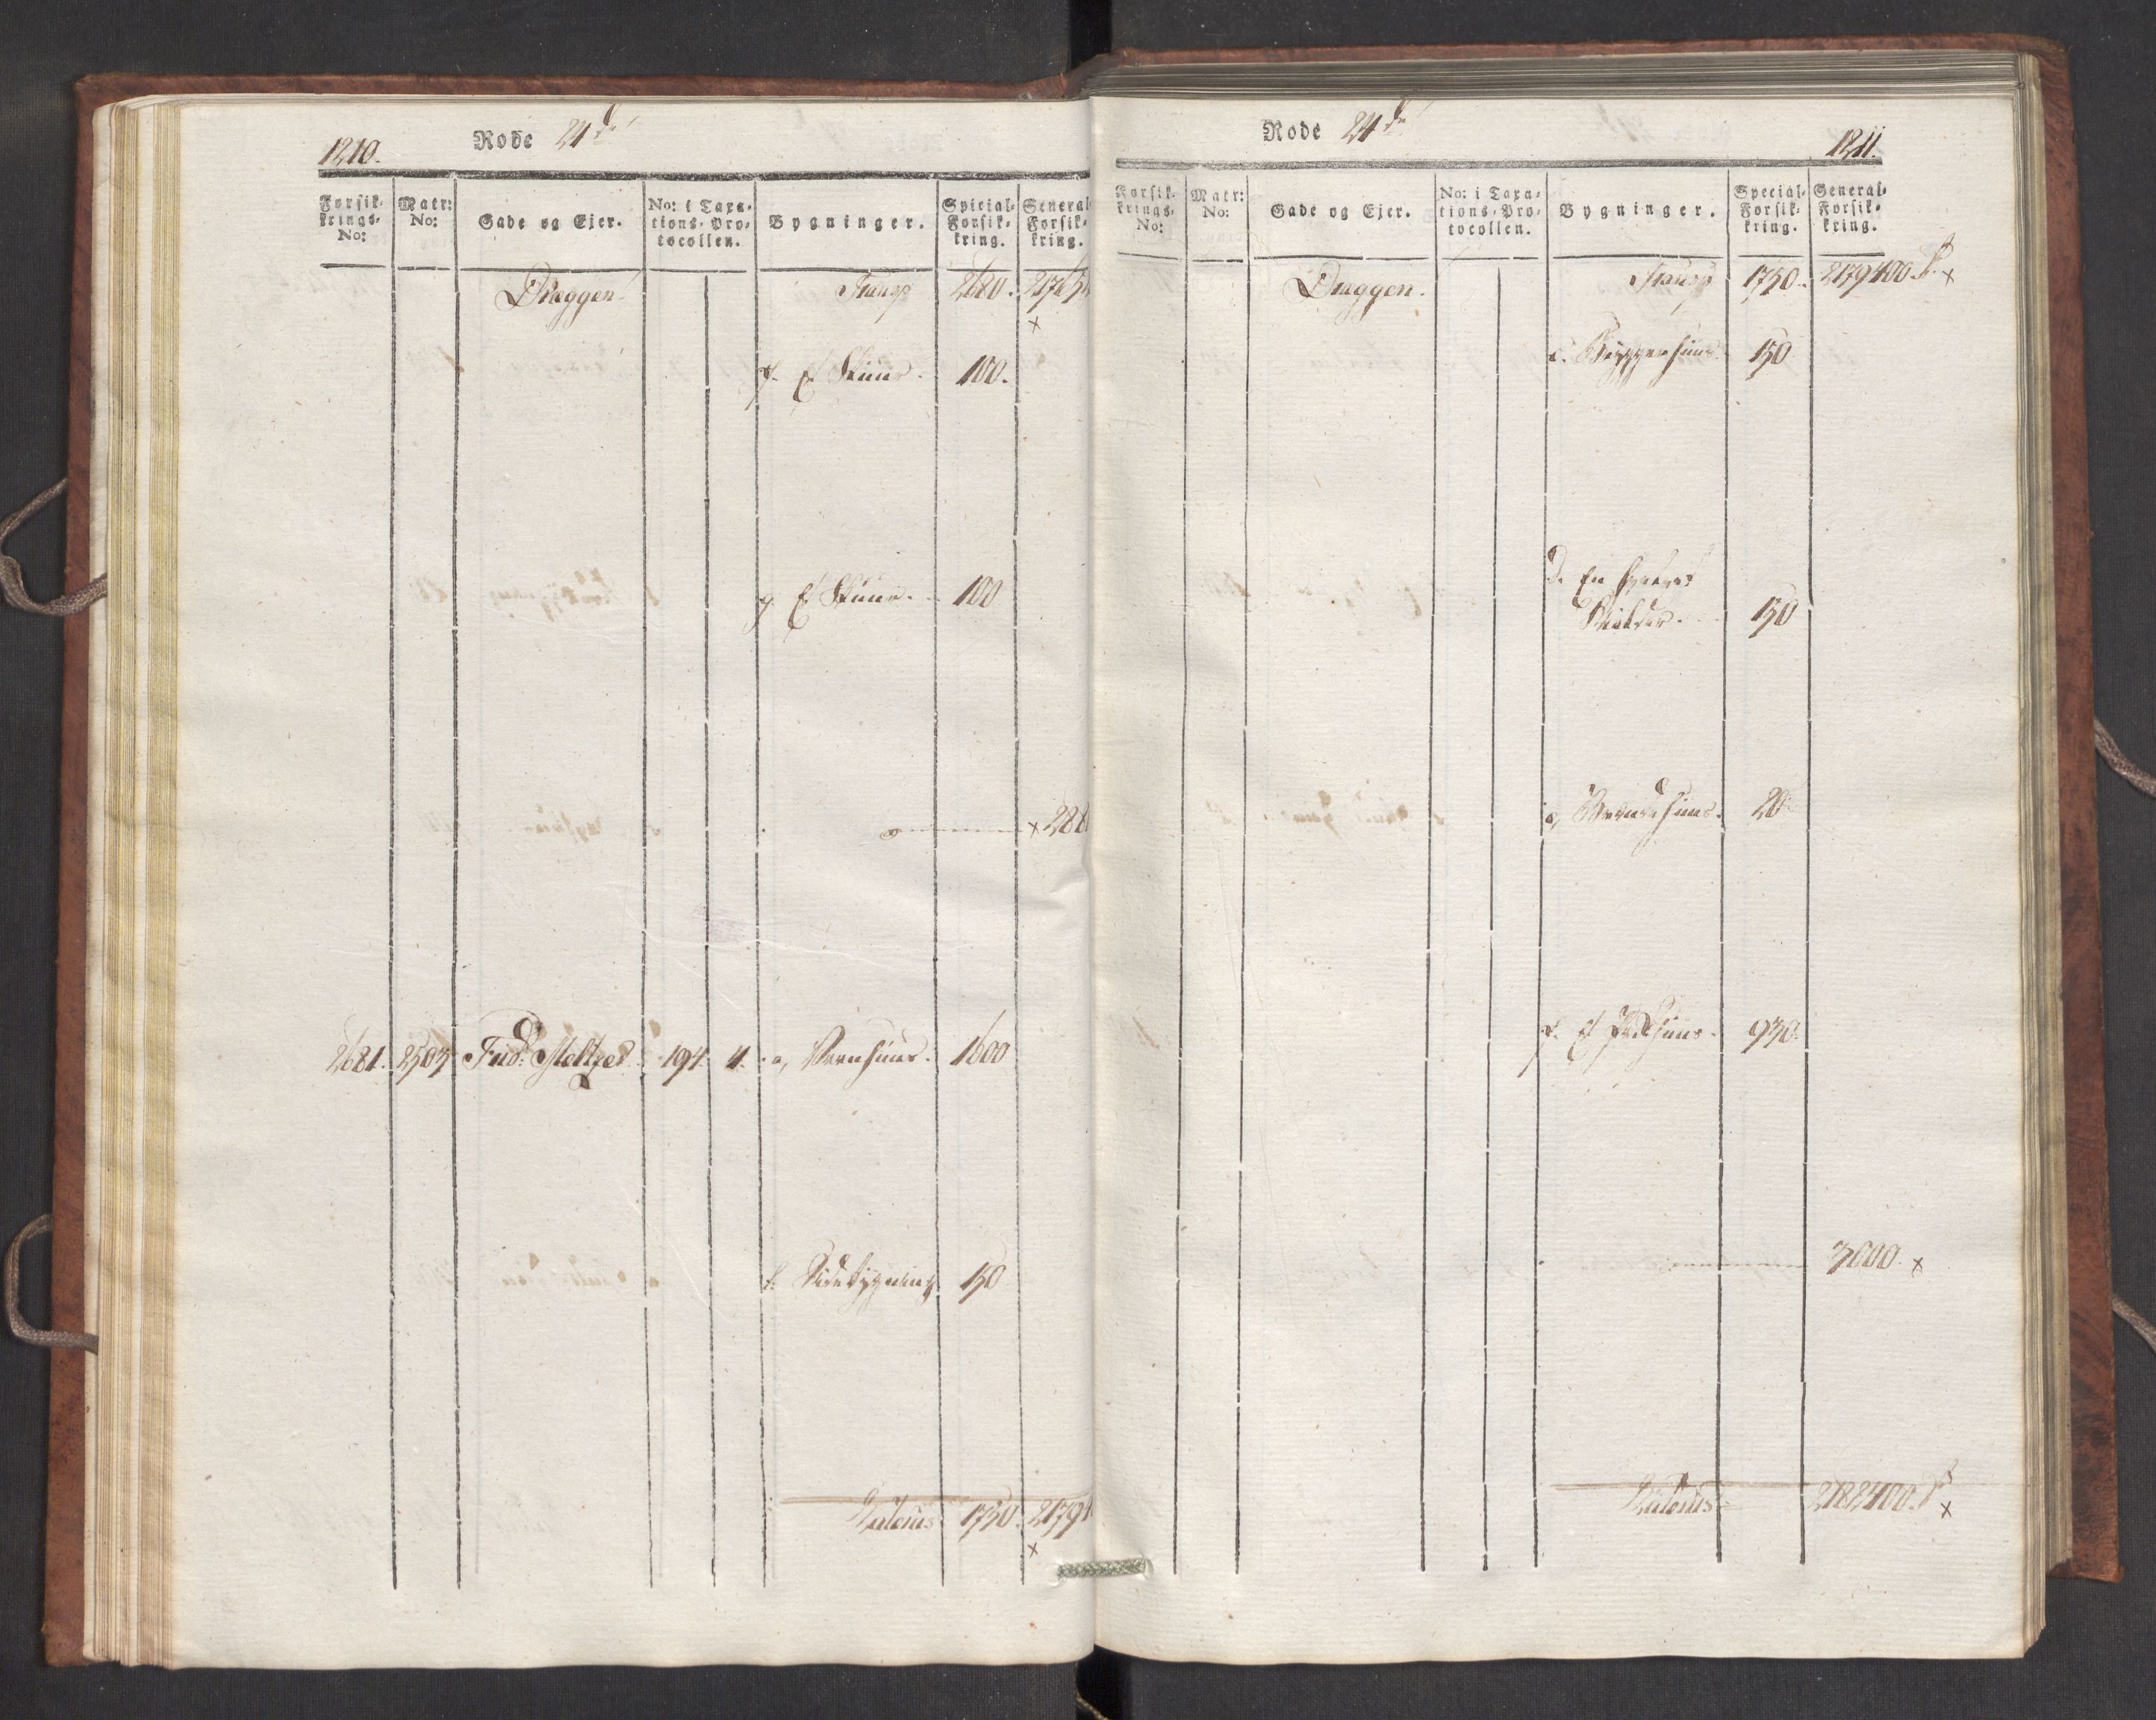 1210.
Rode 24de
Forsik-
krings-
No:
Matr:
No:
Gade og Ejer.
No: i Taxa-
tions-Pro-
tocollen.
Bygninger.
Special-
Forsik-
kring.
General
Forsik-
kring.
Dræggen.
Transp 2680. 2176
x
f. Et Skuur. 100.
g. Et Skuur. 100
x 288
2681. 2503 Frid: Meltzer 194. 4. a, Vaanhuus. 1600
b. Sidebygning 150
Lateris 1750. 2179
x
Rode 24de
1211.
Forsik-
krings-
No:
Matr:
No:
Gade og Ejer.
No: i Taxa-
tions-Pro-
tocollen.
Bygninger.
Special-
Forsik-
kring.
General-
Forsik-
kring.
Dræggen.
Transp 1750. 2179400. x
c. Bryggerhuus 150
d. En
150
e, Brændehuus. 20
f. Et Pakhuus. 930.
3000. x
Lateris 2182400. x